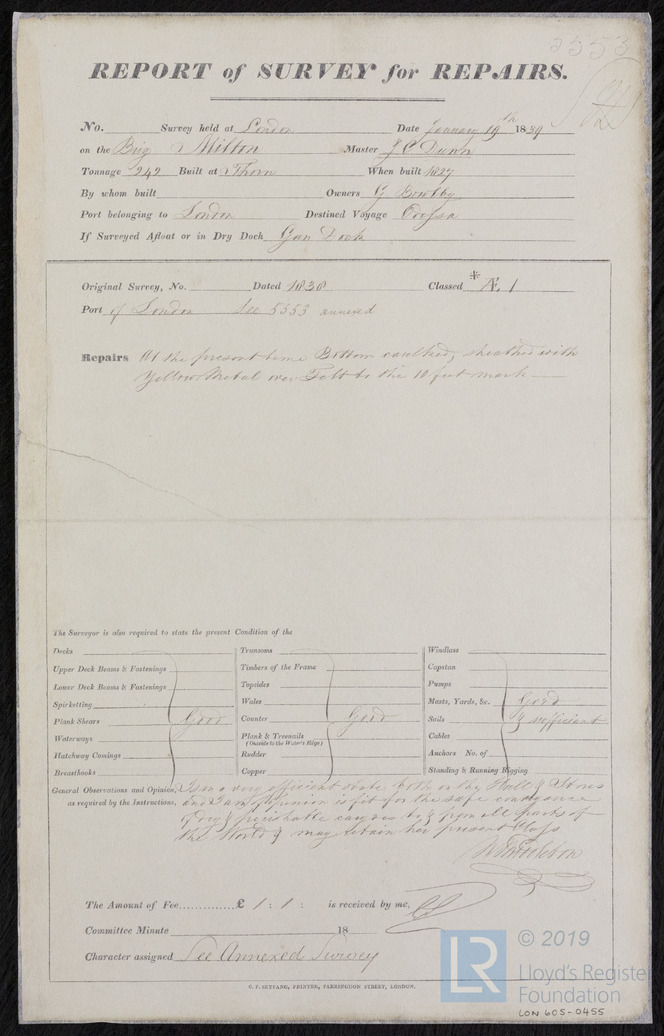 5553
REPORT of SURVEY for REPAIRS.
No. Survey held at London Date January 19th 1839
on the Brig Milton Master J C Dunn
Tonnage 242 Built at Thorn When built 1827
By whom built Owners G Bowlby
Port belonging to London Destined Voyage Odessa
If Surveyed Afloat or in Dry Dock Dock
Original Survey, No. Dated 1838 Classed * Æ 1
Port of London See 5553 annexed
Repairs At the present time Bottom caulked, sheathed with
Yellow Metal over Felt to the 10 feet mark
The Surveyor is also required to state the present Condition of the
Decks
Upper Deck Beams & Fastenings
Lower Deck Beams & Fastenings
Spirketting
Plank Shears Good
Waterways
Hatchway Comings
Breasthooks
Transoms
Timbers of the Frame
Topsides
Wales
Counter Good
Plank & Treenails
(Outside to the Water's Edge)
Rudder
Copper
Windlass
Capstan
Pumps
Masts, Yards, &c. Good
Sails & sufficient
Cables
Anchors No. of
Standing & Running Rigging
General Observations and Opinion, Is in a very efficient state both in her Hull & Stores
as required by the Instructions, and I am of opinion is fit for the safe conveyance
of dry & perishable cargoes to & from all parts of
the World & may retain her present Class
The Amount of Fee............£ 1 : 1 : is received by me,
Committee Minute 18
Character assigned See Annexed Survey
C. F. SEYFANG, PRINTER, FARRINGDON STREET, LONDON.
LR © 2019
Lloyd's Register
Foundation
LON 605-0455